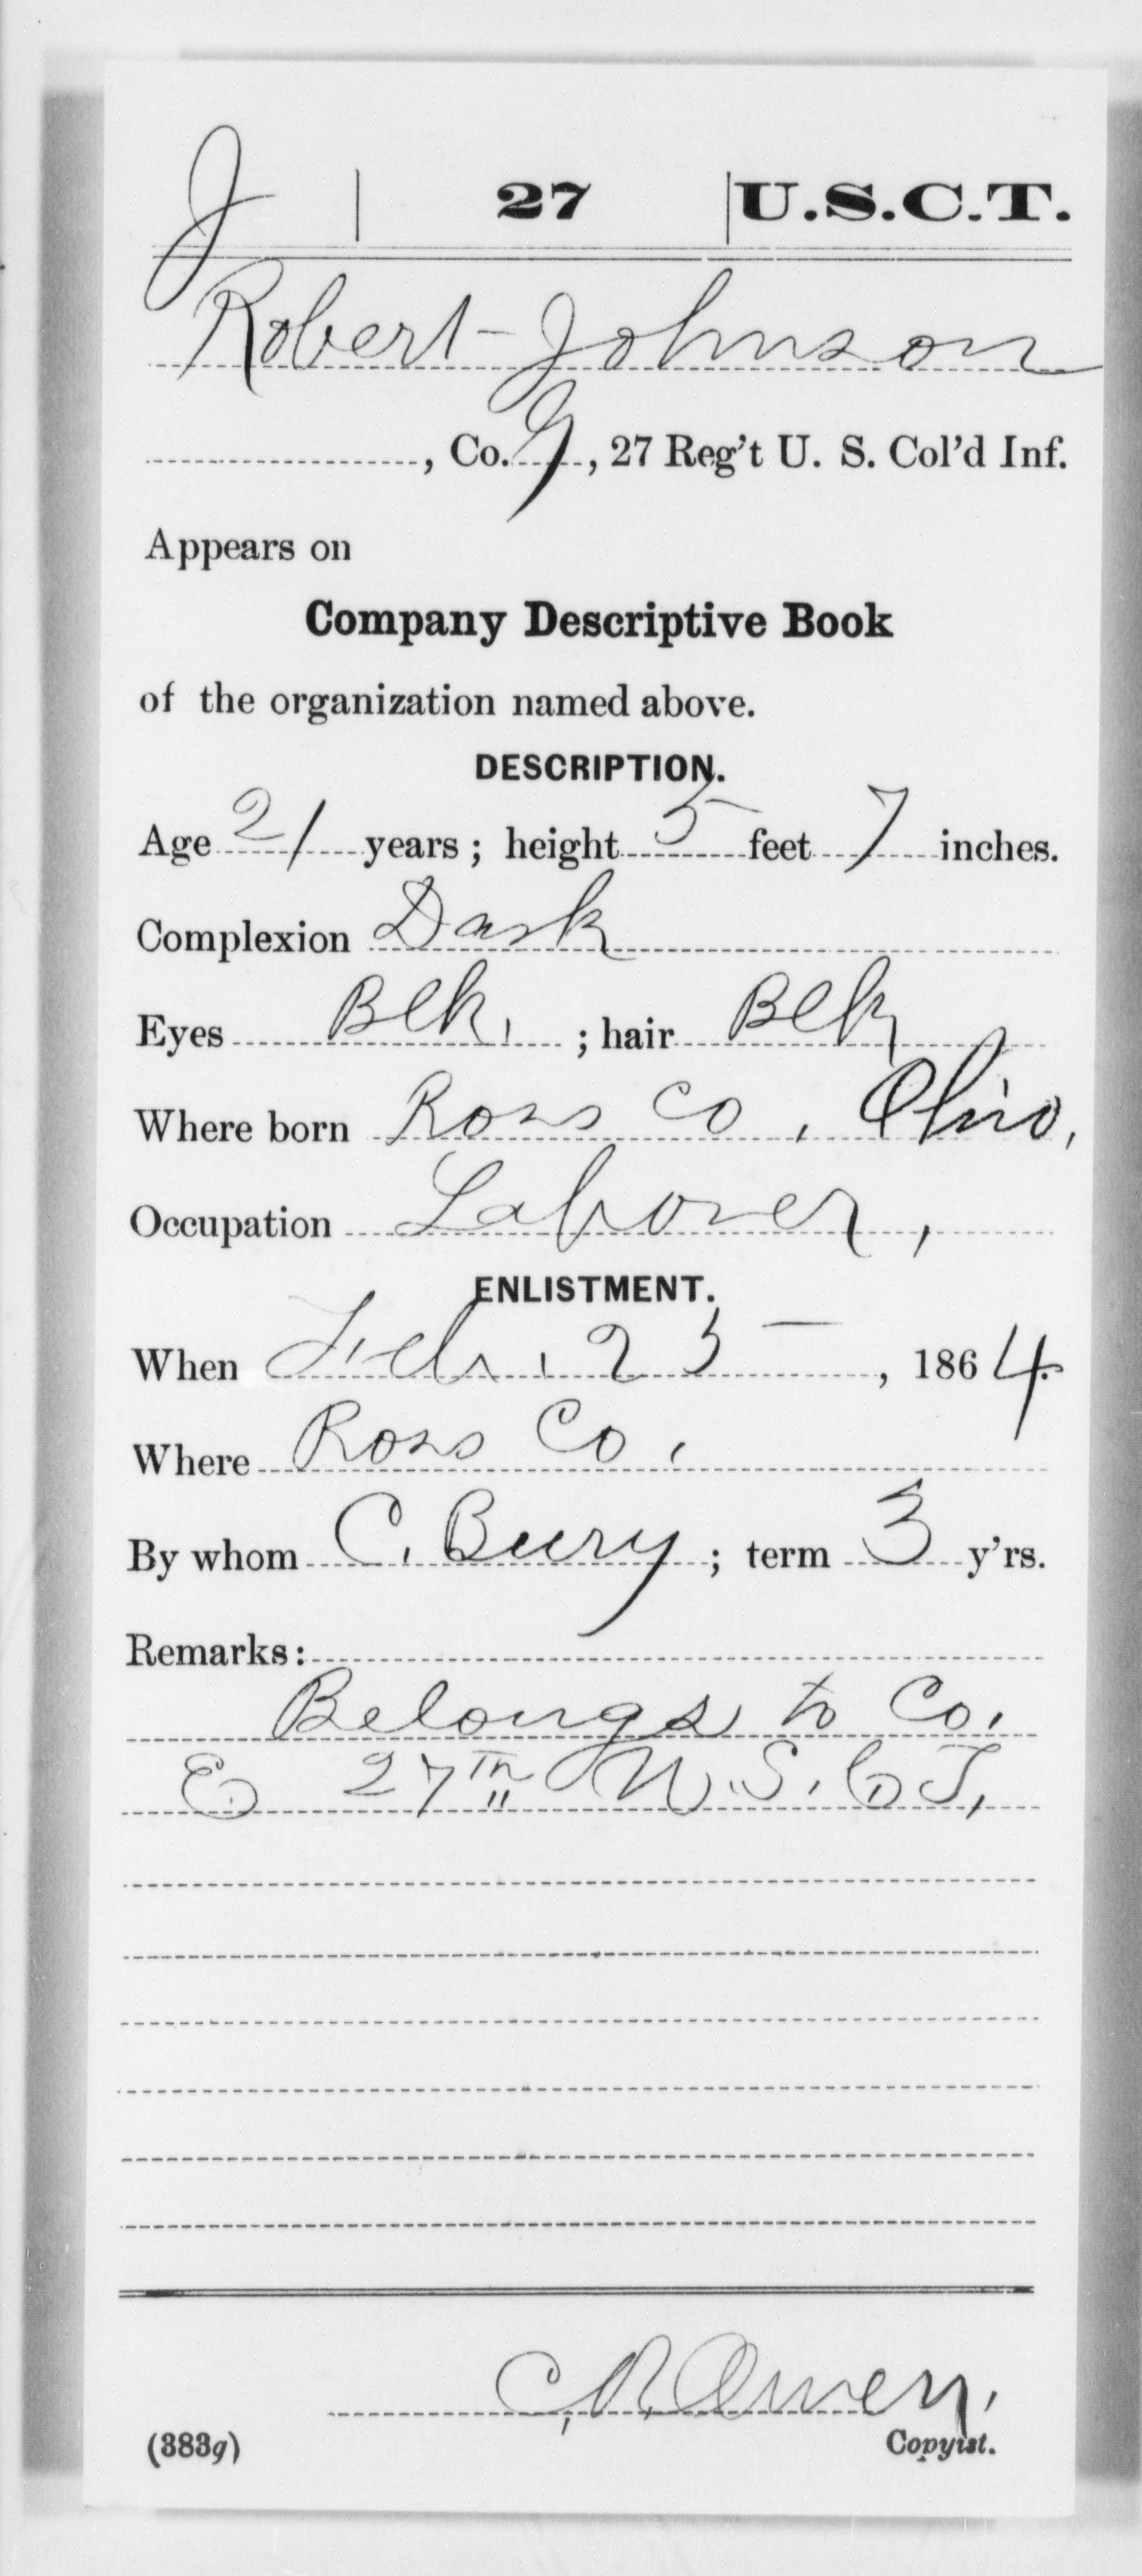 J | 27 | U.S.C.T.
Robert Johnson
, Co. G, 27 Reg't U. S. Col'd Inf.
Appears on
Company Descriptive Book
of the organization named above.
DESCRIPTION.
Age 21 years; height 5 feet 7 inches.
Complexion Dark
Eyes Blk. ; hair Blk
Where born Ross Co, Ohio,
Occupation Laborer,
ENLISTMENT.
When Feb. 25, 1864.
Where Ross Co.
By whom C. Bury; term 3 y'rs.
Remarks:
Belongs to Co.
E 27th U.S.C.T,
C.R. Owen,
(383g) Copyist.